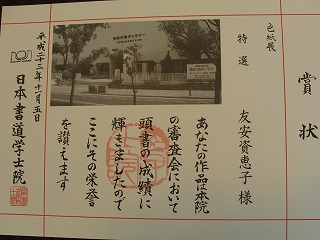 賞状
色紙展
特選 友安資恵子様
あなたの作品は本院
の審査会において
頭書の成績に
輝きましたので
ここにその栄誉
を讃えます
平成二十三年十一月五日
日本書道学士院